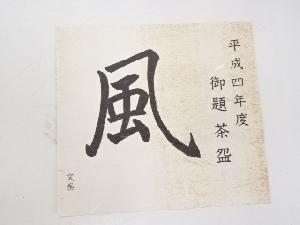 平成四年度
御題茶盌
風